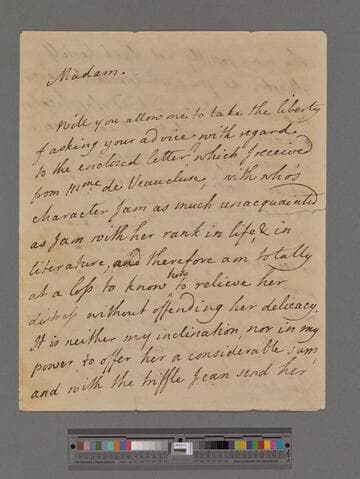 Madam.
Will you allow me to take the liberty
of asking your advice with regard
to the enclosed letter which I received
from Mme de Veaucluse, with who's
character I am as much unacquainted
as I am with her rank in life, & in
literature, and therefore am totally
at a loss to know how to relieve her
distress without offending her delicacy.
It is neither my inclination, nor in my
power to offer her a considerable sum,
and with the triffle I can send her